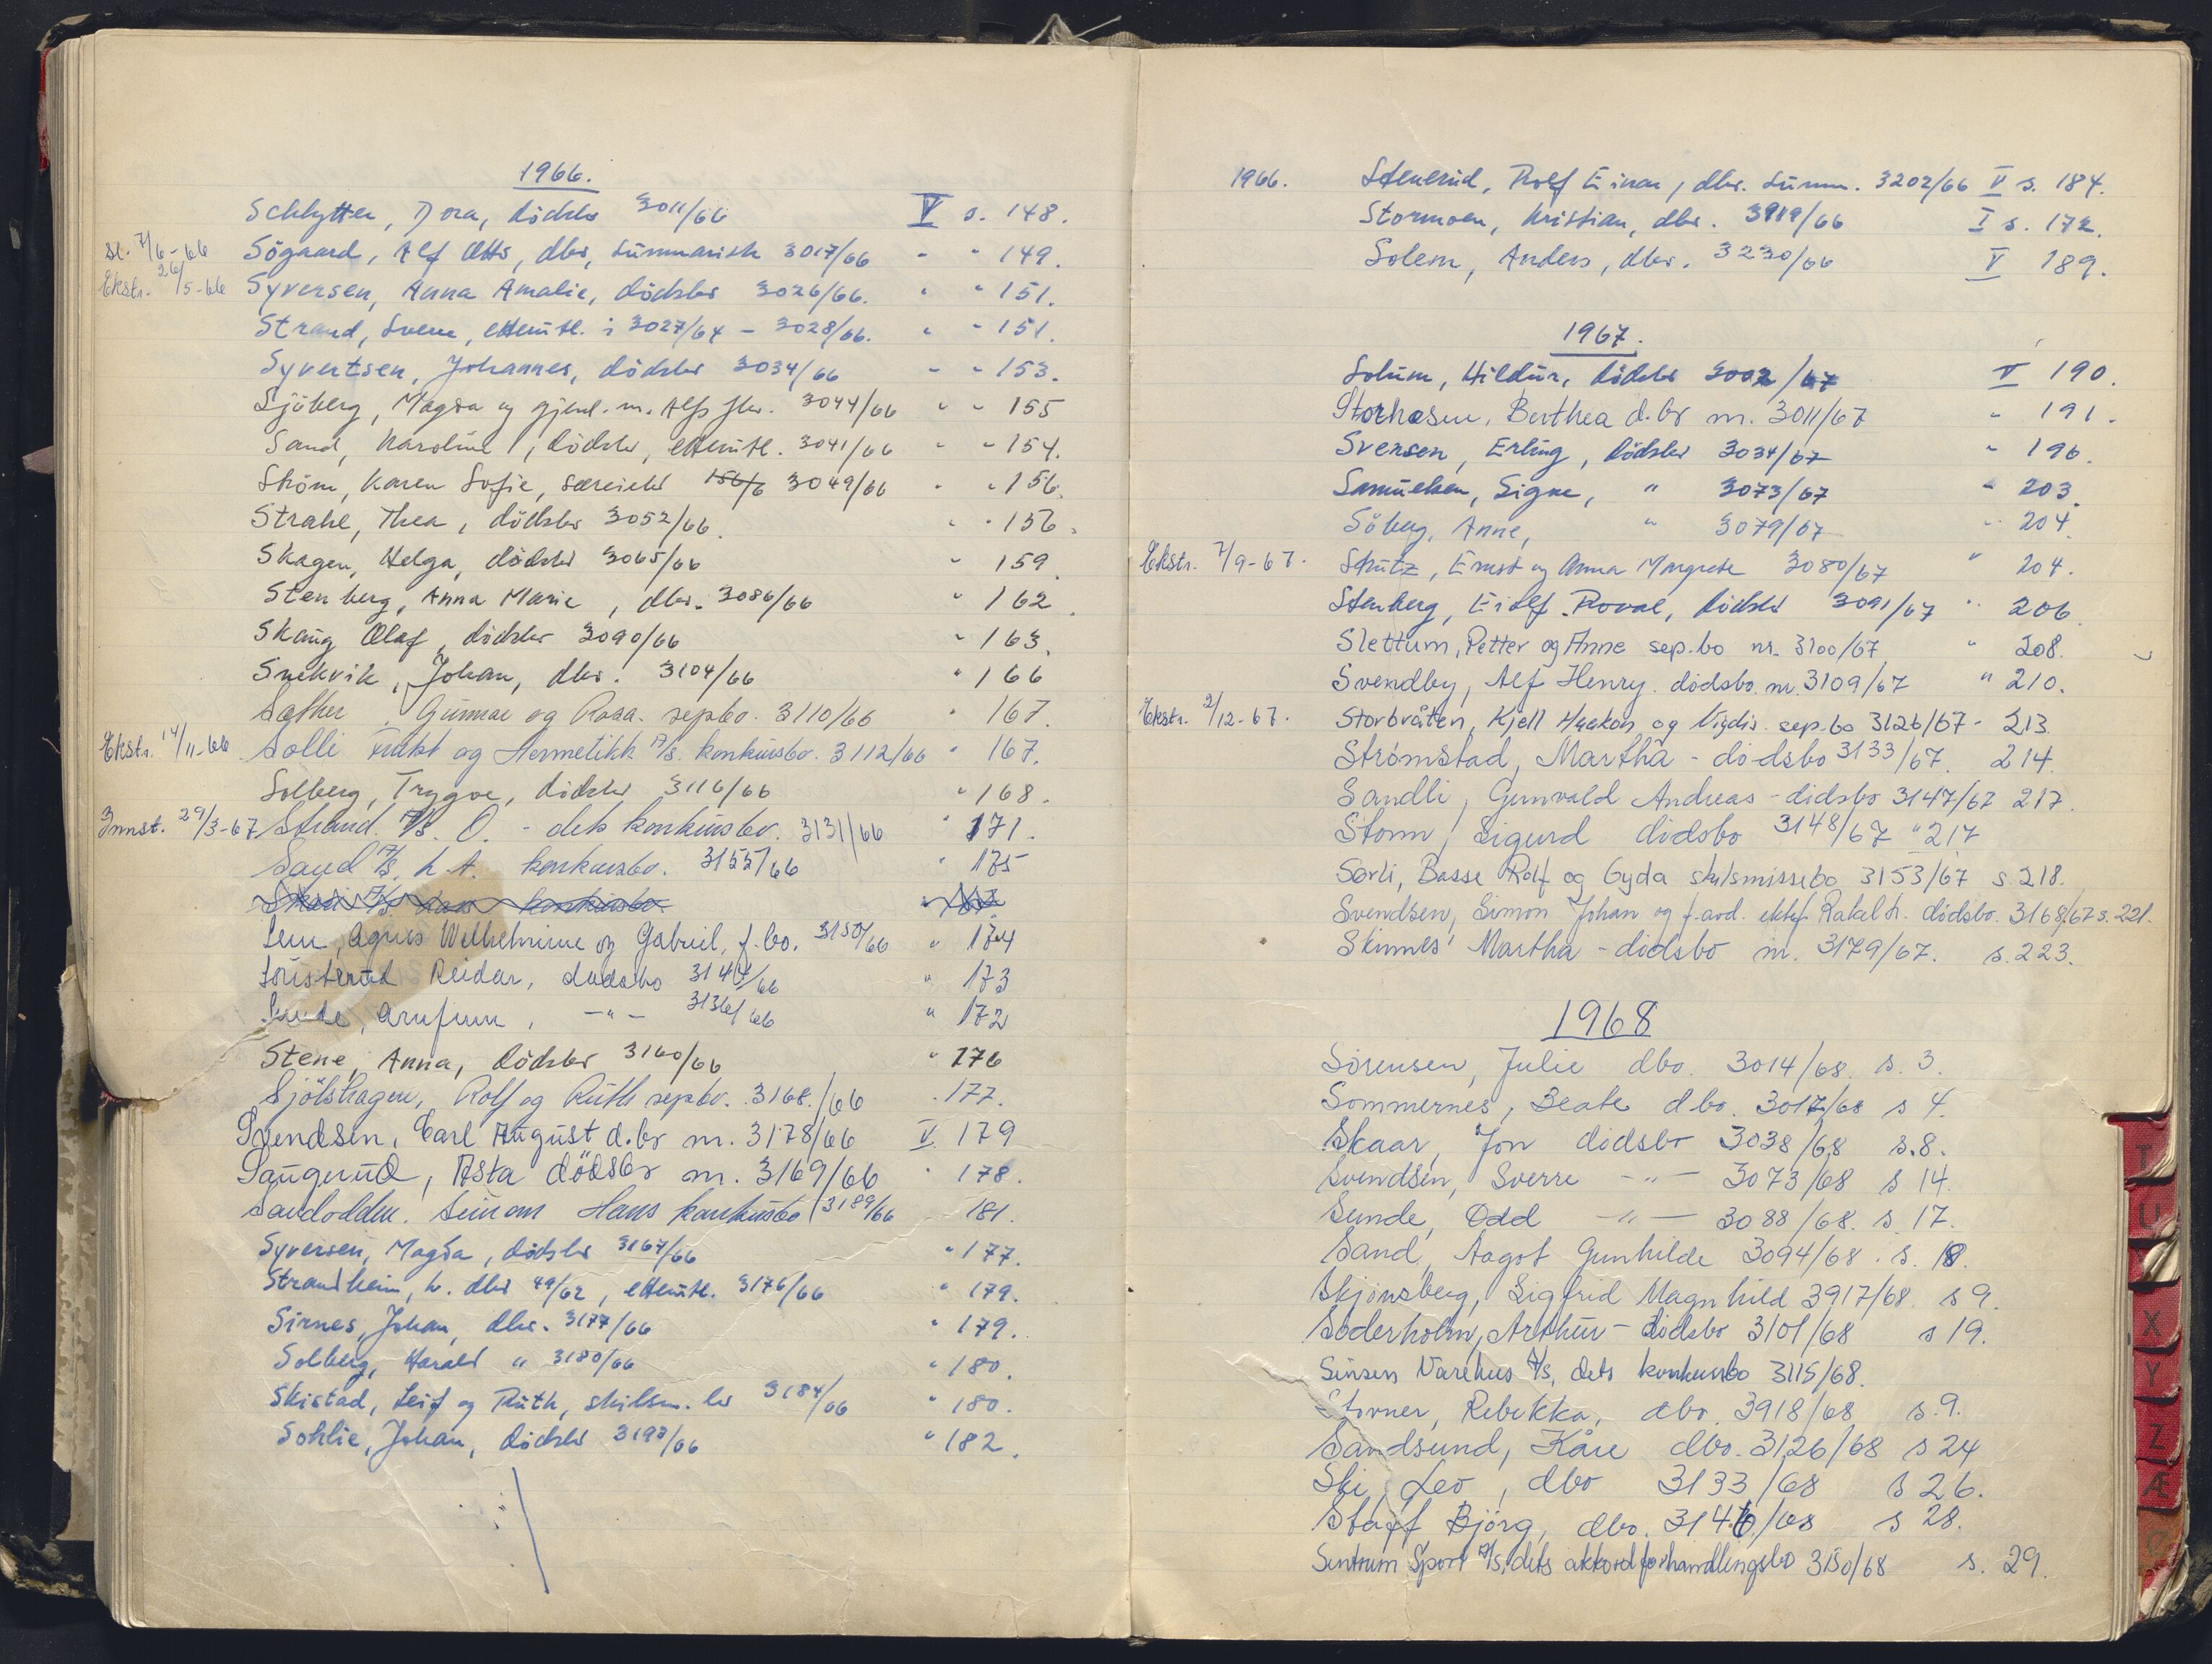 1966.
Schlytter, Dora, dödsbo 3011/66 V s. 148.
sl. 7/6-66 Sögaard, Alf Otto, dbo, summarisk 3017/66 " " 149.
Ekstr. 26/5-66 Syversen, Anna Amalie, dödsbo 3026/66. " " 151.
Strand, Svene, etterutl. i 3027/64 - 3028/66. " " 151.
Syvertsen, Johannes, dödsbo 3034/66 " " 153.
Sjöberg, Magda og gjenl. m. Alfs fbo. 3044/66 " " 155
Sand, Karoline, dödsbo, etterutl. 3041/66 " " 154.
Ström, Karen Sofie, særeiebo 156/6 3049/66 " " 156.
Strake, Thea, dödsbo 3052/66. " " 156.
Skagen, Helga, dödsbo 3065/66 " 159.
Stenberg, Anna Marie, dbo. 3086/66 " 162.
Skaug Olaf, dödsbo 3090/66 " 163.
Snekvik, Johan, dbo. 3104/66 " 166
Sæther, Gunnar og Rosa. sepbo. 3110/66 " 167.
Ekstr. 14/11-66 Solli Frukt og Hermetikk A/s. konkursbo. 3112/66 " 167.
Solberg, Trygve, dödsbo 3116/66 " 168.
Innst. 29/3-67 Strand. A/s. O. - dets konkursbo. 3131/66 " 171.
Sand A/s. h. A. konkursbo. 3155/66 " 175
konkursbo.
Sem, Agnes Wilhelmine og Gabriel, f.bo. 3150/66 " 174
Reidar, dødsbo 3144/66 " 173
Sunde, Arnfinn, -"- 3136/66 " 172
Stene, Anna, dödsbo 3160/66 " 176
Sjölshagen, Rolf og Ruth sepbo. 3168./66 " 177.
Svendsen, Carl August d.bo nr. 3178/66 V 179
Saugerud, Asta dödsbo nr. 3169/66 " 178.
Hans konkursbo 3189/66 181.
Syversen, Magda, dödsbo 3167/66 " 177.
Strandheim, h. dbo 49/62, etterutl. 3176/66 " 179.
Sirnes, Johan, dbo. 3177/66 " 179.
Solberg, Harald " 3180/66 " 180.
Skistad, Leif og Ruth, skilsm. bo 3184/66 " 180.
Sohlie, Johan, dödsbo 3193/66 " 182.
1966. Stenerud, Rolf Einar, dbo. summ. 3202/66 V s. 184.
Stormoen, Kristian, dbo. 3919/66 I s. 172.
Solem, Anders, dbo. 3230/66 V 189.
1967.
Solum, Hildur, dödsbo 3002/67 V 190.
Storhosen, Berthea d.bo nr. 3011/67 " 191.
Svensen, Erling, dödsbo 3034/67 " 196.
Samuelsen, Signe, " 3073/67 " 203.
Söberg, Anne, " 3079/67 " 204.
Ekstr. 7/9-67. Schutz, Ernst og Anna Margrete 3080/67 " 204.
Stenberg, Eidlf Roval, dödsbo 3091/67 " 206
Slettum, Petter og Anne sep.bo nr. 3100/67 " 208.
Svendby, Alf Henry. dödsbo. nr. 3109/67 " 210.
Ekstr. 2/12-67. Storbråten, Kjell Haakon og Vigdis. sep.bo 3126/67 - 213.
Strømstad, Martha - dødsbo 3133/67. 214.
Sandli, Gunvald Andreas - dödsbo 3147/67 217.
Storm, Sigurd dödsbo 3148/67 " 217
Sørli, Basse Rolf og Gyda skilsmissebo 3153/67 s. 218.
Svendsen, Simon Johan og f.avd. ektef. Rakel h. dödsbo. 3168/67 s. 221.
Skinnes' Martha - dödsbo nr. 3179/67. s. 223.
1968
Sörensen, Julie dbo. 3014/68. s. 3.
Sommernes, Beate dbo. 3017/68 s 4.
Skaar, Jon dödsbo 3038/68 s.8.
Svendsen, Sverre -"- 3073/68 s 14.
Sunde, Odd -"- 3088/68. s. 17.
Sand, Aagot Gunhilde 3094/68. s. 18.
Skjönsberg, Sigfrid Magnhild 3917/68. s 9.
Söderholm, Arthur - dödsbo 3101/68 s 19.
Sinsen Varehus A/s, dets konkursbo 3115/68.
Stovner, Rebekka, dbo. 3918/68 s. 9.
Sandsund, Kåre dbo. 3126/68 s 24
Ski, Leo, dbo 3133/68 s 26.
Staff Björg, dbo. 3146/68 s 28.
Sentrum Sport A/s, dets akkordforhandlingsbo 3150/68 s. 29.
T
U
X
Y
Z
Æ
Ø